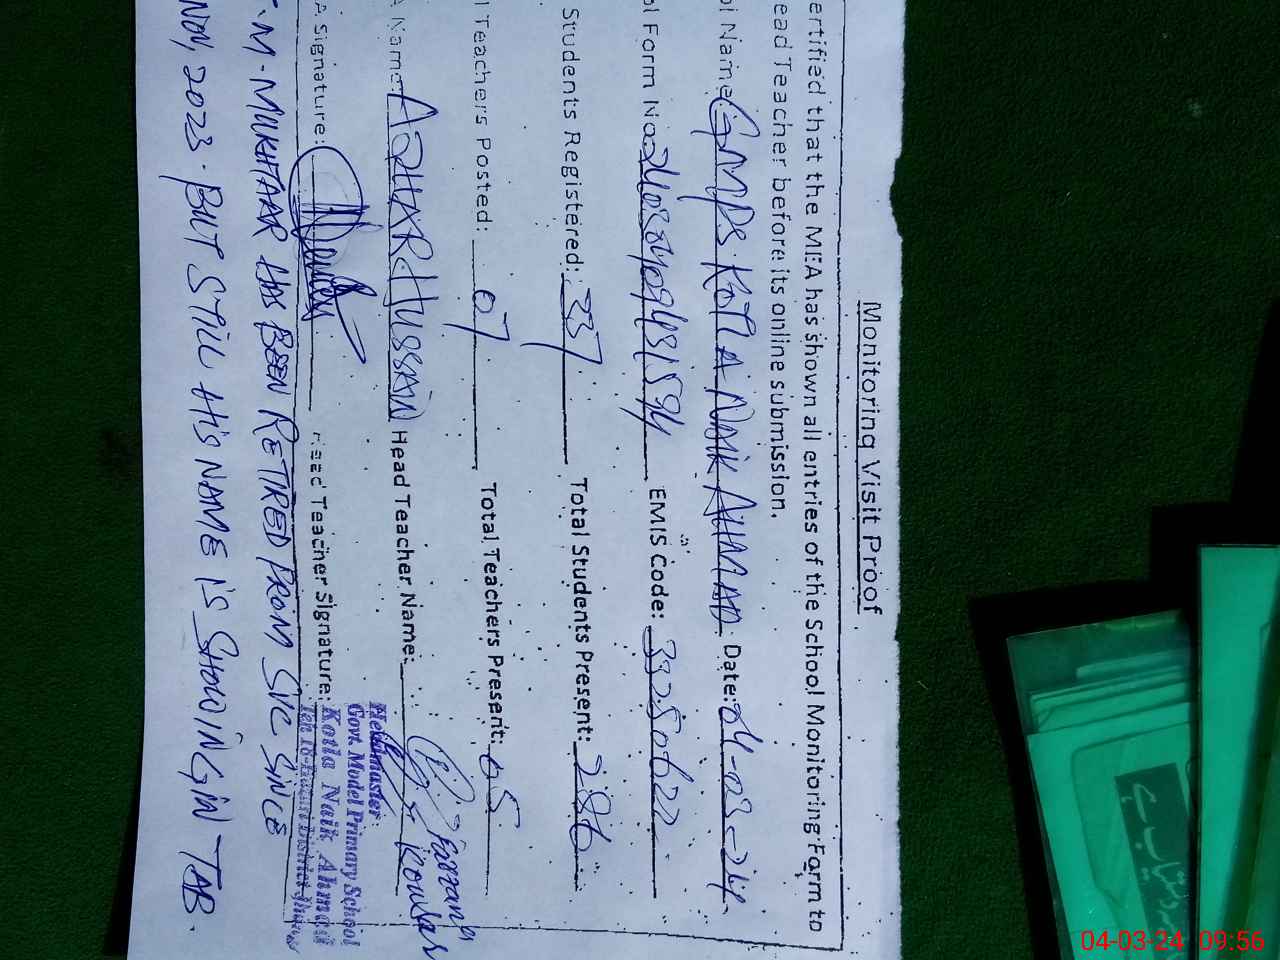 Monitoring Visit Proof
ertified that the MEA has shown all entries of the School Monitoring Form to
ead Teacher before its online submission.
ol Name: GMPS KOTLA NAIK AHMAD Date: 04-03-24
ol Form No EMIS Code: 33250622
Students Registered: 337 Total Students Present: 286
l Teachers Posted: 07 Total Teachers Present: 05
A Name: AZHAR HUSSAIN Head Teacher Name: Farzana Kousar
A Signature: Head Teacher Signature:
Headmaster
Govt. Model Primary School
Kotla Naik Ahmad
M. MUKHTAAR HAS BEEN RETIRED FROM SVC SINCE
NOV, 2023. BUT STILL HIS NAME IS SHOWING IN TAB.
04-03-24 09:56